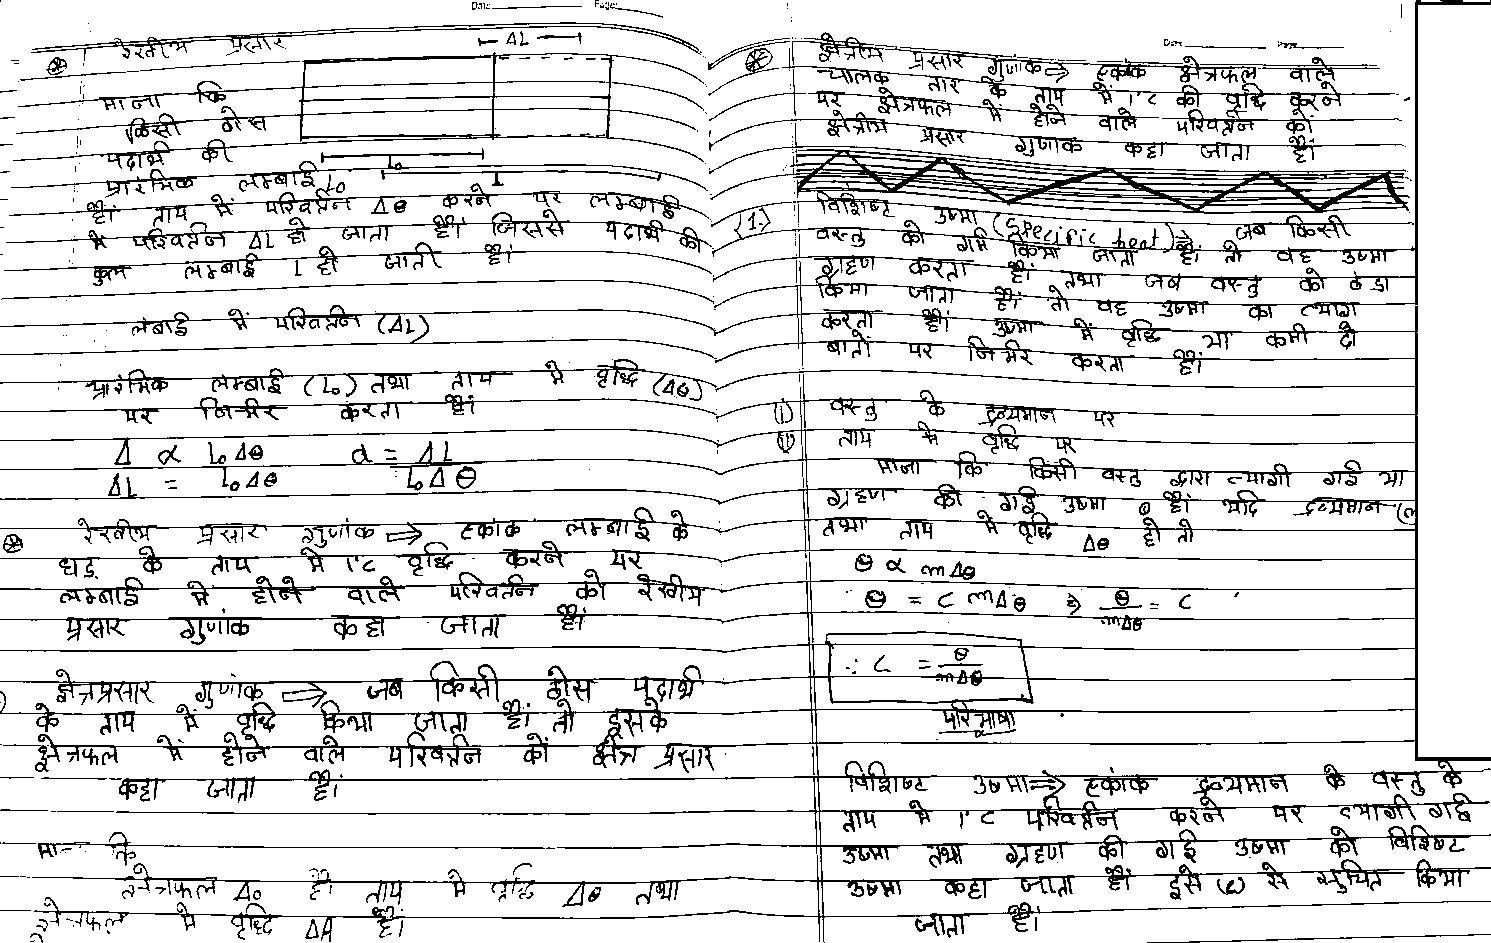 Date Page
रेखीय प्रसार
ΔL
माना कि
किसी ठोस
पदार्थ की
L₀
L
प्रारंभिक लम्बाई L₀
है। ताप में परिवर्तन Δθ करने पर लम्बाई
में परिवर्तन ΔL हो जाता है। जिससे पदार्थ की
कुल लम्बाई L हो जाती है।
लंबाई में परिवर्तन (ΔL)
प्रारंभिक लम्बाई (L₀) तथा ताप में वृद्धि (Δθ)
पर निर्भर करता है।
Δ ∝ L₀Δθ α = ΔL / L₀Δθ
ΔL = L₀Δθ
रेखीय प्रसार गुणांक ⇒ एकांक लम्बाई के
धड़ के ताप में 1°C वृद्धि करने पर
लम्बाई में होने वाले परिवर्तन को रेखीय
प्रसार गुणांक कहा जाता है।
क्षेत्रप्रसार गुणांक ⇒ जब किसी ठोस पदार्थ
के ताप में वृद्धि किया जाता है। तो इसके
क्षेत्रफल में होने वाले परिवर्तन को क्षेत्र प्रसार
कहा जाता है।
कि
क्षेत्रफल Δ₀ है। ताप में वृद्धि Δθ तथा
क्षेत्रफल में वृद्धि ΔA है।
Date Page
क्षेत्रीय प्रसार गुणांक ⇒ एकांक क्षेत्रफल वाले
चालक तार के ताप में 1°C की वृद्धि करने
पर क्षेत्रफल में होने वाले परिवर्तन को
क्षेत्रीय प्रसार गुणांक कहा जाता है।
(1.) विशिष्ट उष्मा (Specific heat) ⇒ जब किसी
वस्तु को गर्म किया जाता है। तो वह उष्मा
ग्रहण करता है। तथा जब वस्तु को ठंडा
किया जाता है। तो वह उष्मा का त्याग
करता है। उष्मा में वृद्धि या कमी दो
बातों पर निर्भर करता है।
(i) वस्तु के द्रव्यमान पर
(ii) ताप में वृद्धि पर
माना कि किसी वस्तु द्वारा त्यागी गई या
ग्रहण की गई उष्मा θ है। यदि द्रव्यमान
तथा ताप में वृद्धि Δθ हो तो
θ ∝ mΔθ
θ = C mΔθ ⇒ θ / mΔθ = C
∵ C = θ / mΔθ
परिभाषा
विशिष्ट उष्मा ⇒ एकांक द्रव्यमान के वस्तु के
ताप में 1°C परिवर्तन करने पर त्यागी गई
उष्मा तथा ग्रहण की गई उष्मा को विशिष्ट
उष्मा कहा जाता है। इसे (c) से सुचित किया
जाता है।